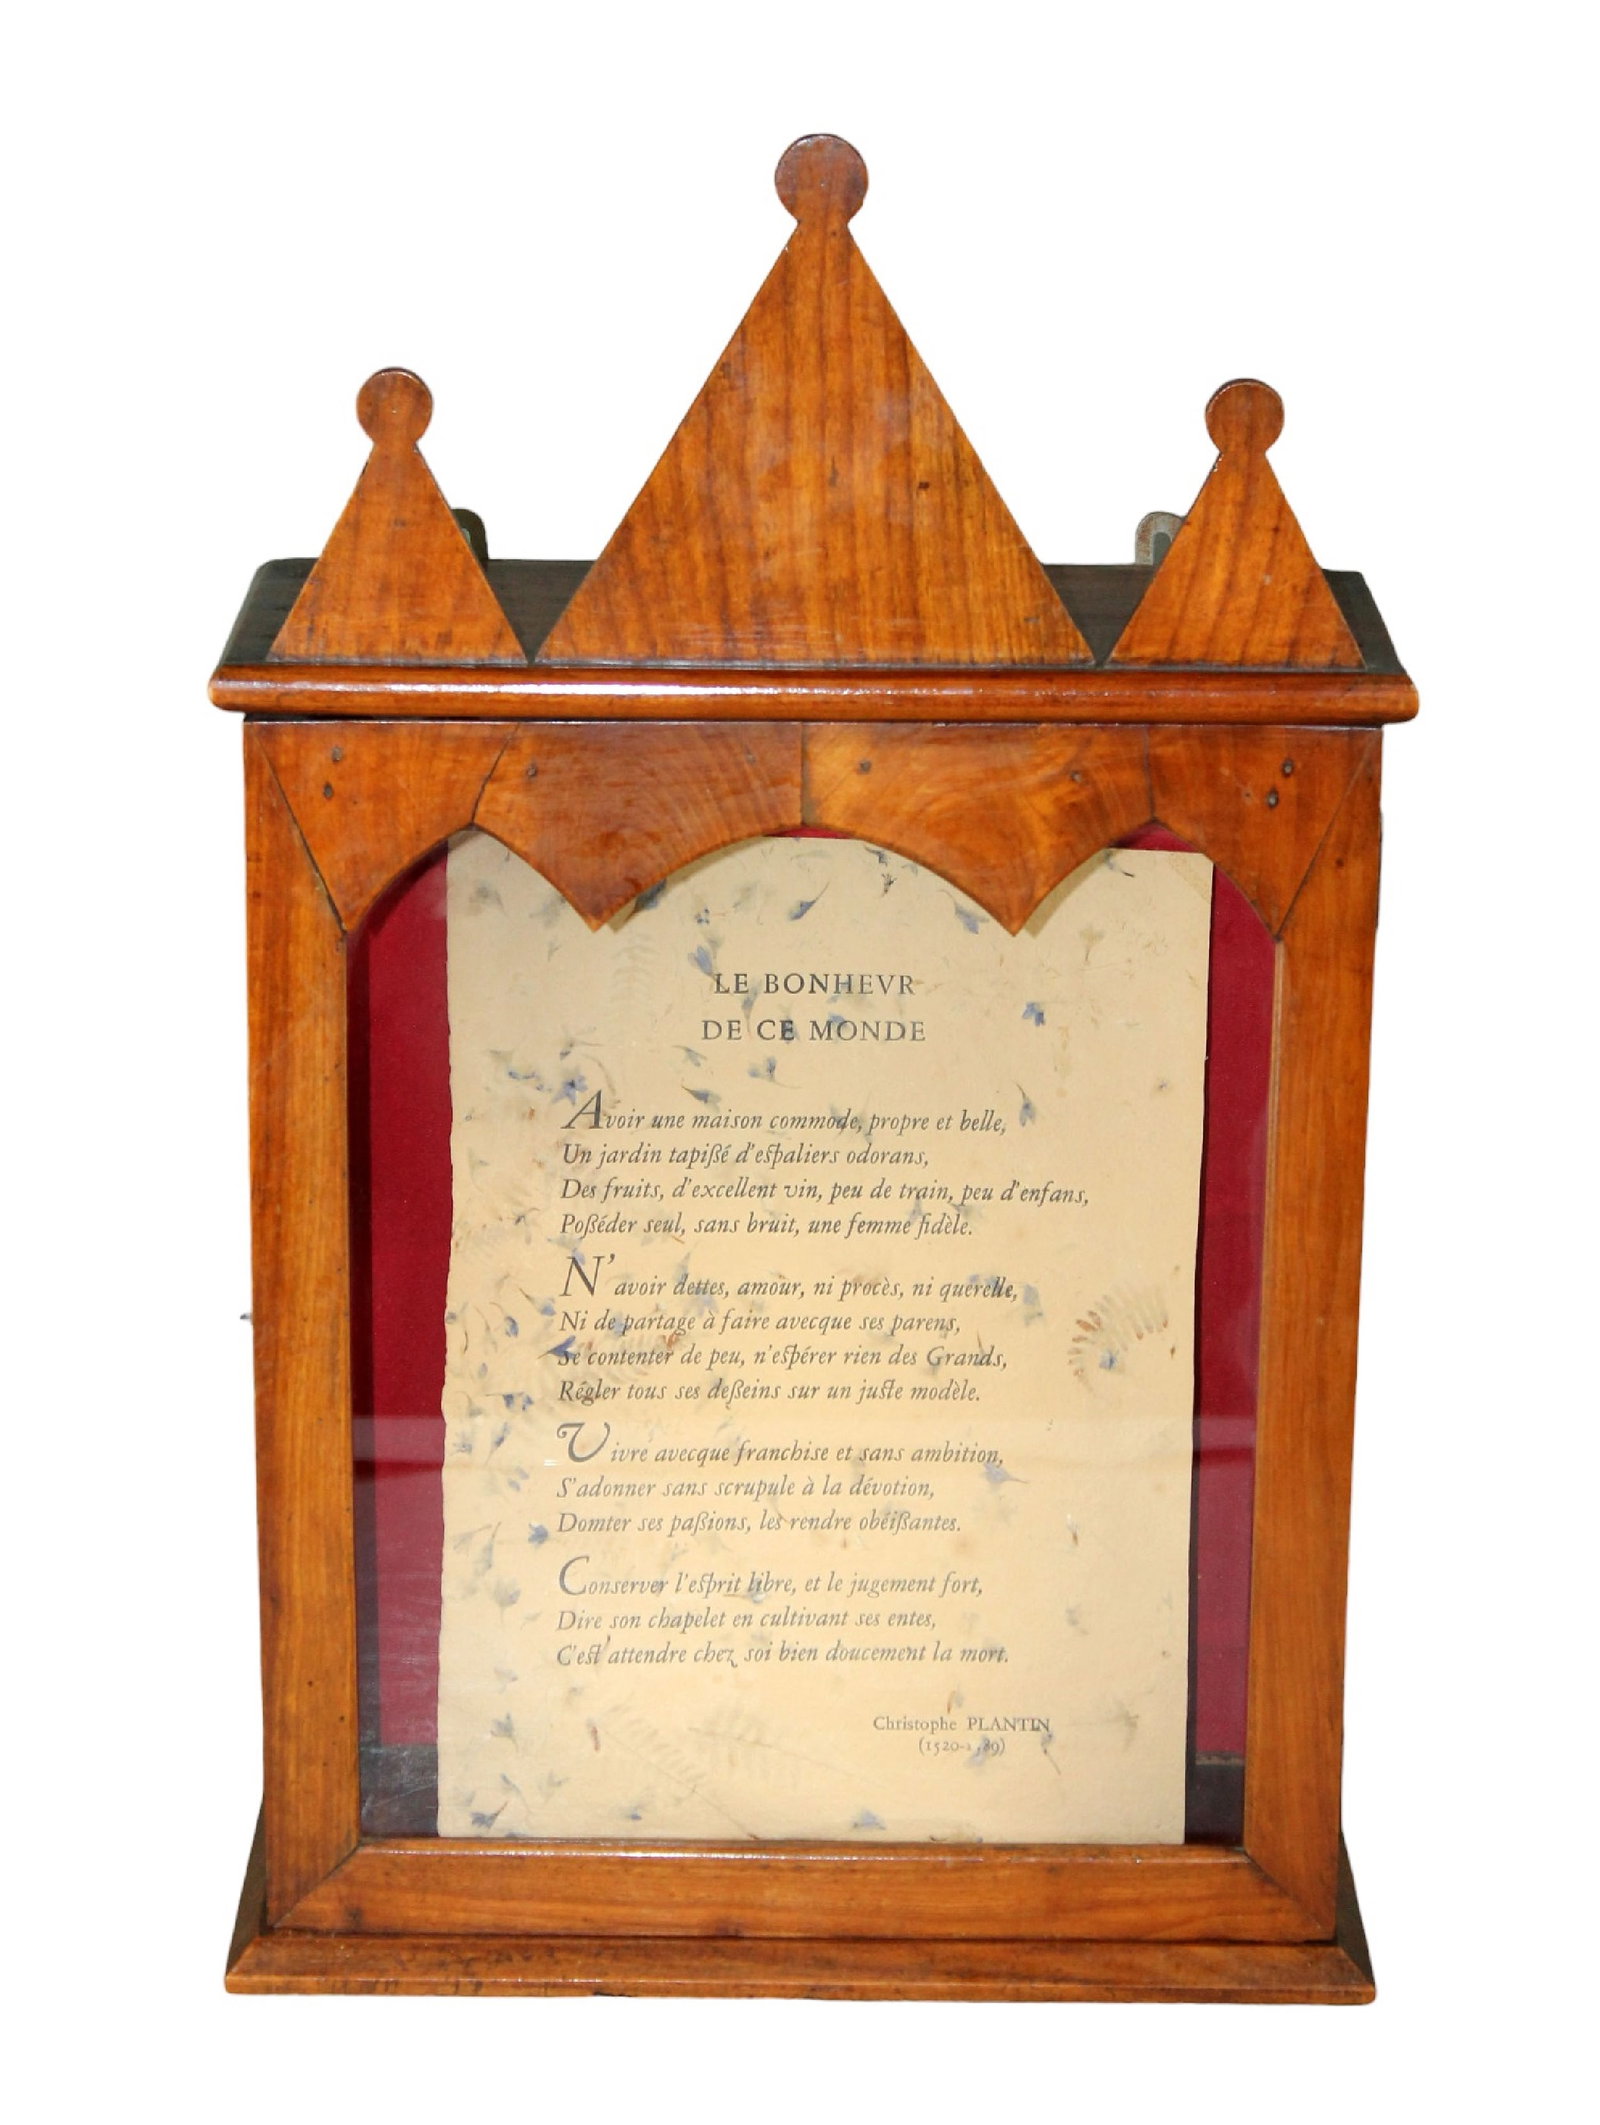 LE BONHEVR
DE CE MONDE
Avoir une maison commode, propre et belle,
Un jardin tapißé d'espaliers odorans,
Des fruits, d'excellent vin, peu de train, peu d'enfans,
Poßéder seul, sans bruit, une femme fidèle.
N'avoir dettes, amour, ni procès, ni querelle,
Ni de partage à faire avecque ses parens,
Se contenter de peu, n'espérer rien des Grands,
Régler tous ses deßeins sur un juste modèle.
Vivre avecque franchise et sans ambition,
S'adonner sans scrupule à la dévotion,
Domter ses paßions, les rendre obéißantes.
Conserver l'esprit libre, et le jugement fort,
Dire son chapelet en cultivant ses entes,
C'est attendre chez soi bien doucement la mort.
Christophe PLANTIN
(1520-1589)